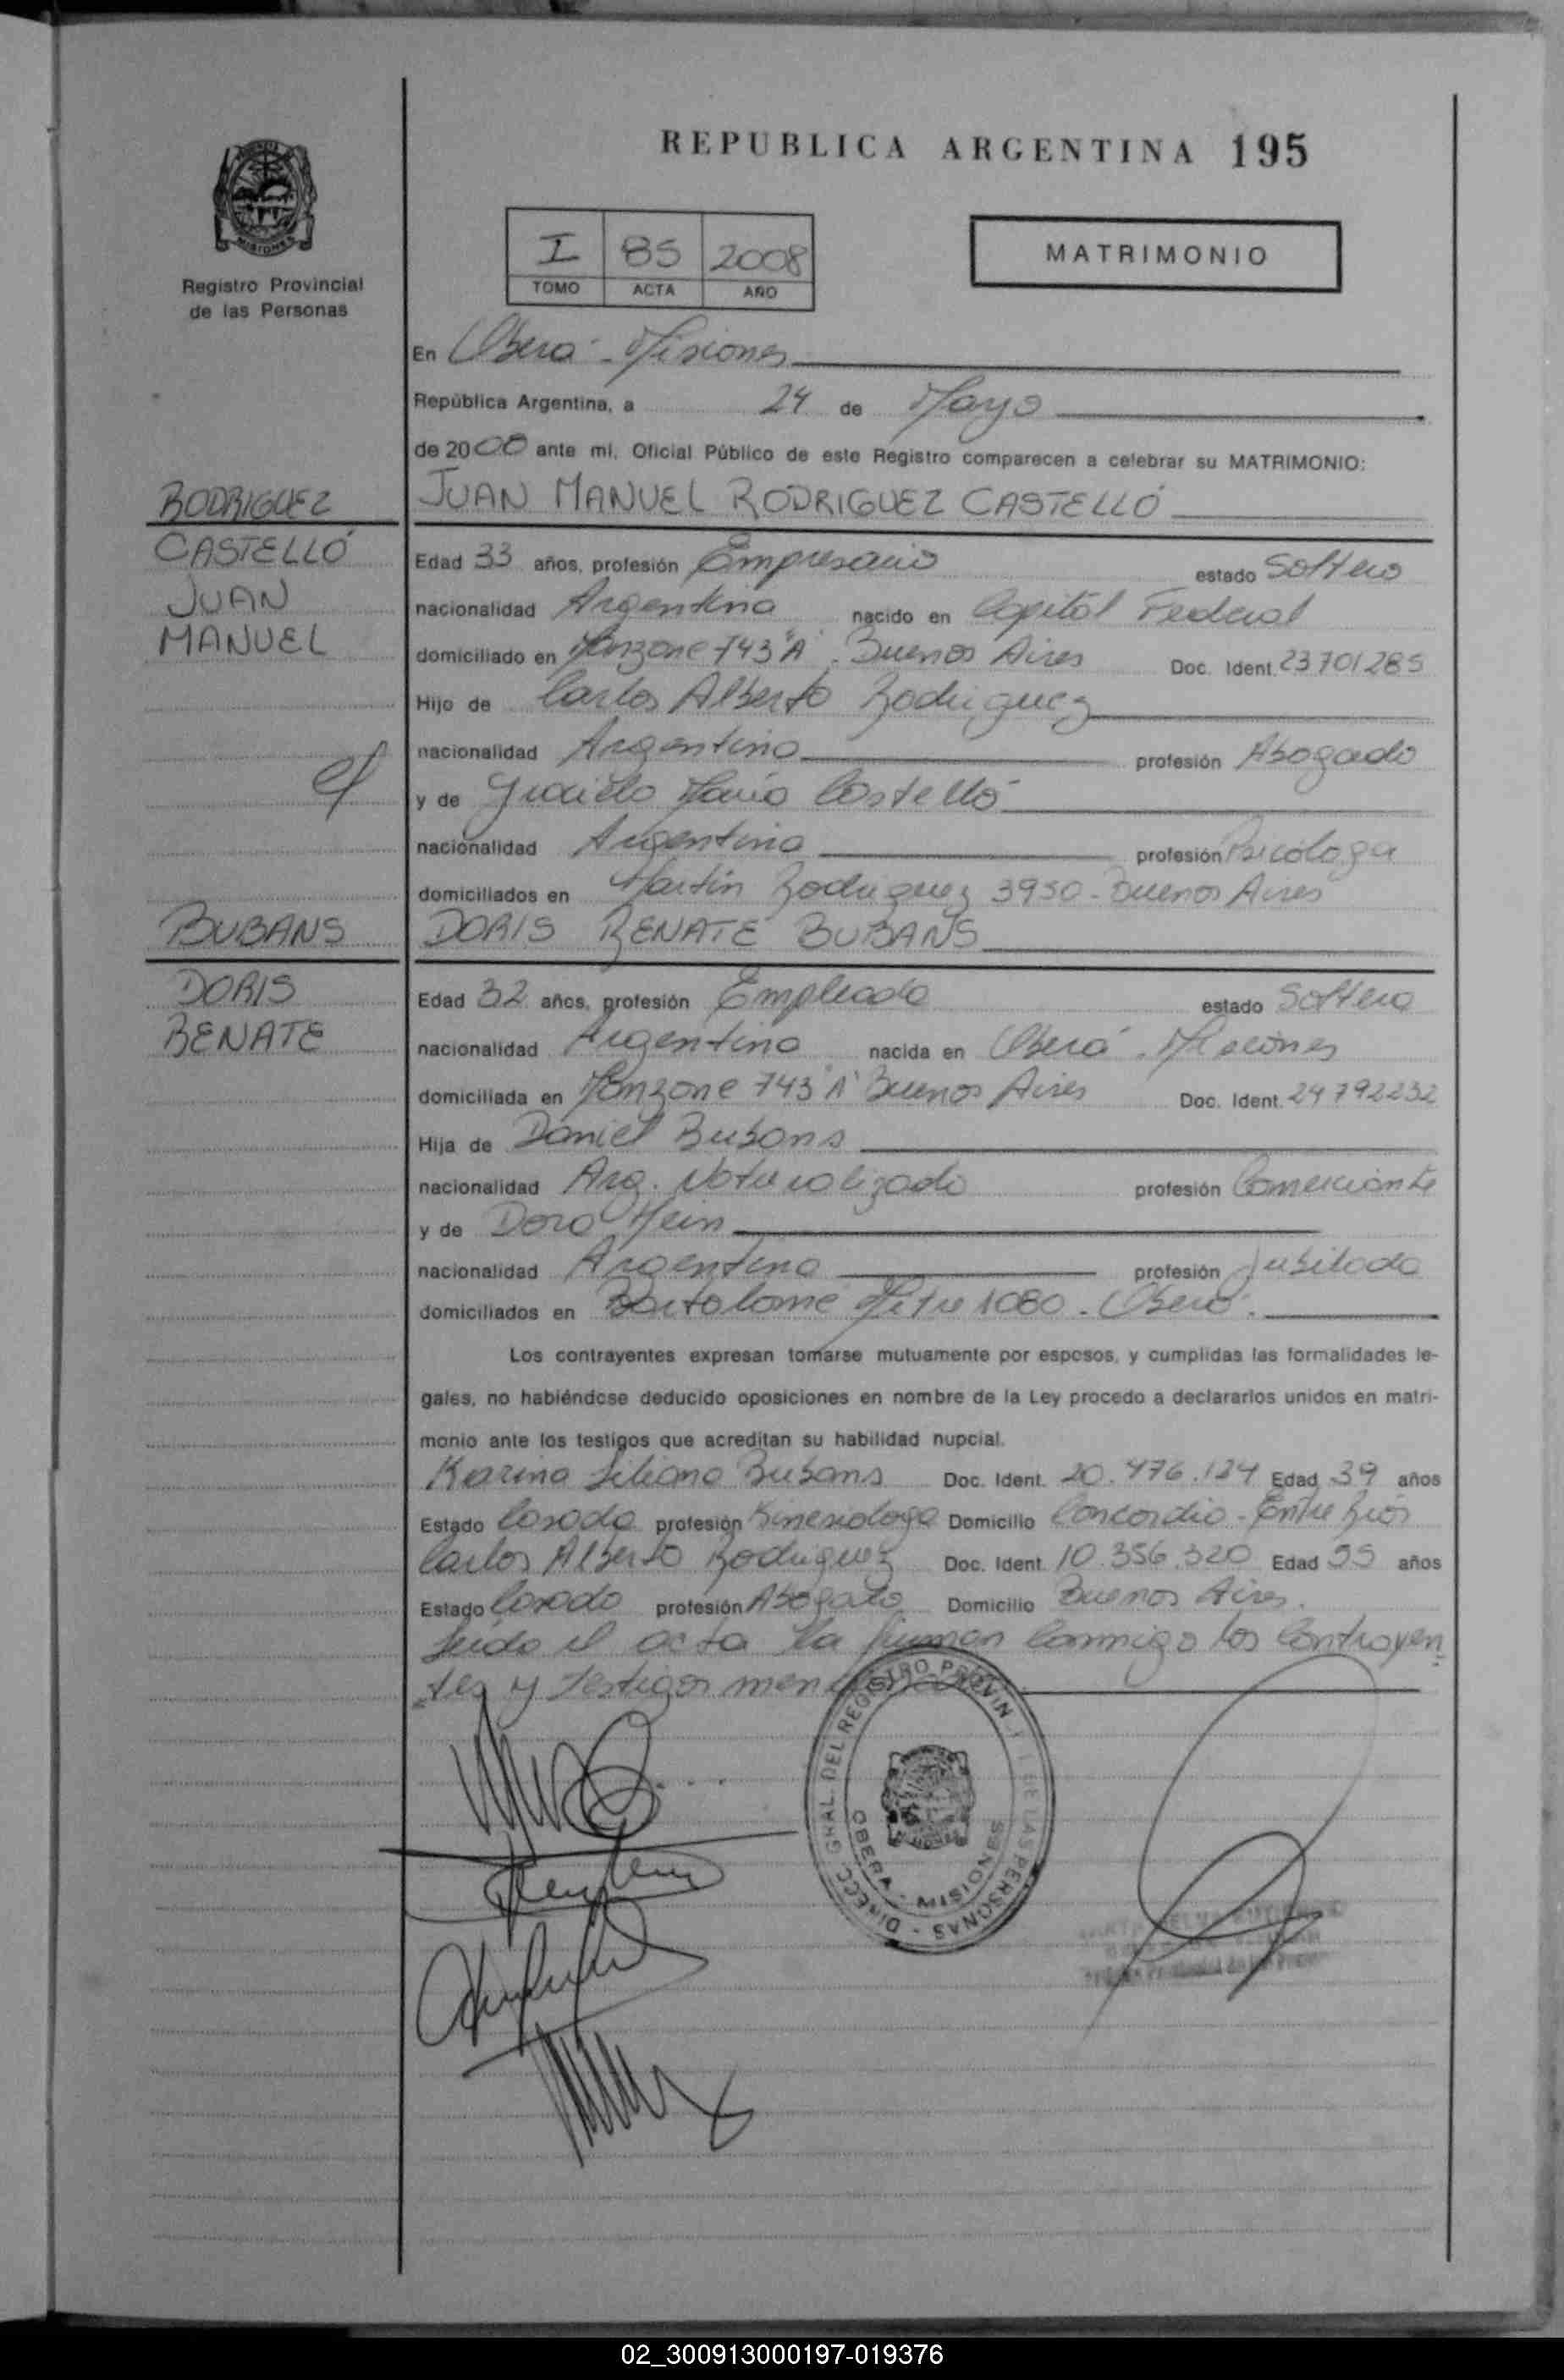 REPUBLICA ARGENTINA 195
MISIONES
Registro Provincial
de las Personas
I 85 2008
TOMO ACTA AÑO
MATRIMONIO
En Oberá - Misiones
República Argentina, a 24 de Mayo
de 2008 ante mí, Oficial Público de este Registro comparecen a celebrar su MATRIMONIO:
RODRIGUEZ
CASTELLÓ
JUAN
MANUEL
JUAN MANUEL RODRIGUEZ CASTELLÓ
Edad 33 años, profesión Empresario estado Soltero
nacionalidad Argentina nacido en Capital Federal
domiciliado en Manzone 743 "A". Buenos Aires Doc. Ident. 23701285
Hijo de Carlos Alberto Rodriguez
nacionalidad Argentina profesión Abogado
y de Graciela María Castelló
nacionalidad Argentina profesión Psicóloga
domiciliados en Martín Rodriguez 3950 - Buenos Aires
BUBANS
DORIS
RENATE
DORIS RENATE BUBANS
Edad 32 años, profesión Empleada estado Soltera
nacionalidad Argentina nacida en Oberá. Misiones
domiciliada en Manzone 743 "A" Buenos Aires Doc. Ident. 24792232
Hija de Daniel Bubans
nacionalidad Arg. Naturalizado profesión Comerciante
y de Dora Hein
nacionalidad Argentina profesión Jubilada
domiciliados en Bartolomé Mitre 1080 - Oberá.
Los contrayentes expresan tomarse mutuamente por esposos, y cumplidas las formalidades le-
gales, no habiéndose deducido oposiciones en nombre de la Ley procedo a declararlos unidos en matri-
monio ante los testigos que acreditan su habilidad nupcial.
Karina Liliana Bubans Doc. Ident. 20.476.124 Edad 39 años
Estado Casada profesión Kinesióloga Domicilio Concordia - Entre Ríos
Carlos Alberto Rodriguez Doc. Ident. 10.356.320 Edad 55 años
Estado Casado profesión Abogado Domicilio Buenos Aires.
Leída el acta la firman conmigo los contrayen
tes y testigos
DIRECC. GRAL. DEL REGISTRO PROVIN DE LAS PERSONAS
OBERA - MISIONES
02_300913000197-019376